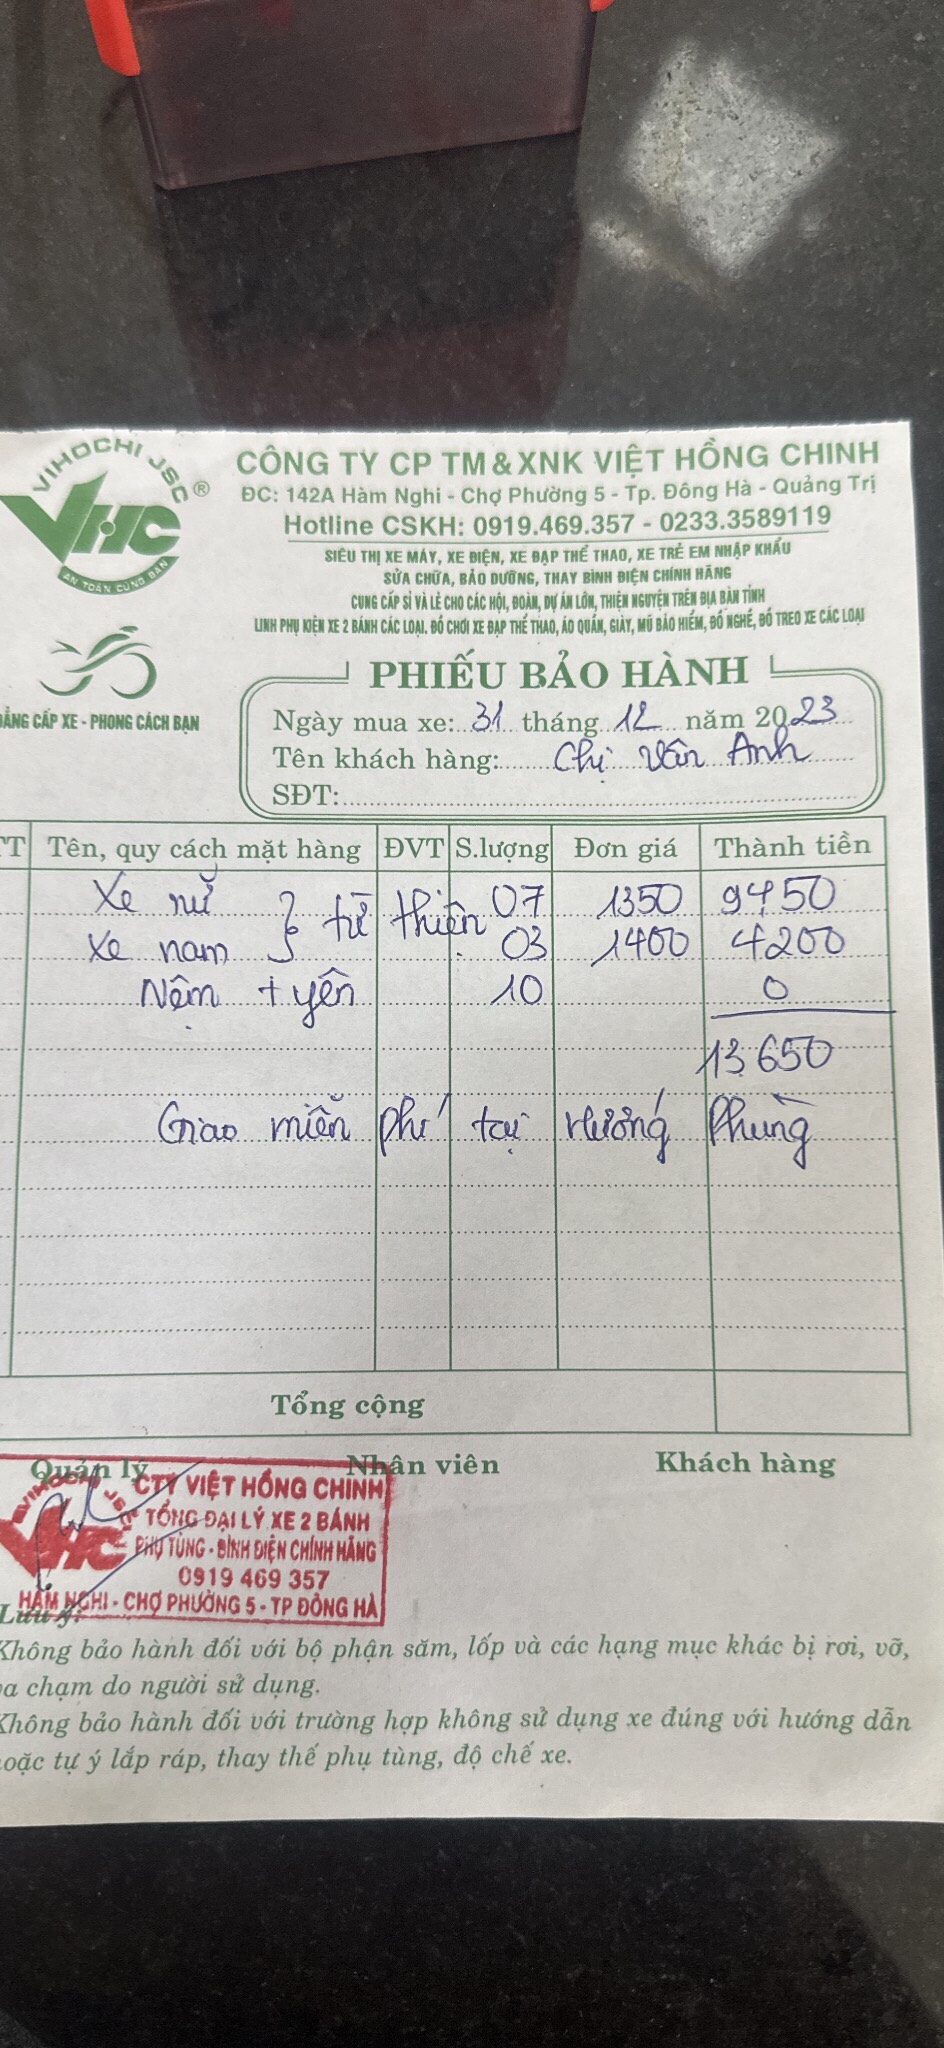 VIHOCHI JSC ®
VHC
AN TOÀN CÙNG BẠN
CÔNG TY CP TM & XNK VIỆT HỒNG CHINH
ĐC: 142A Hàm Nghi - Chợ Phường 5 - Tp. Đông Hà - Quảng Trị
Hotline CSKH: 0919.469.357 - 0233.3589119
SIÊU THỊ XE MÁY, XE ĐIỆN, XE ĐẠP THỂ THAO, XE TRẺ EM NHẬP KHẨU
SỬA CHỮA, BẢO DƯỠNG, THAY BÌNH ĐIỆN CHÍNH HÃNG
CUNG CẤP SỈ VÀ LẺ CHO CÁC HỘI, ĐOÀN, DỰ ÁN LỚN, THIỆN NGUYỆN TRÊN ĐỊA BÀN TỈNH
LINH PHỤ KIỆN XE 2 BÁNH CÁC LOẠI. ĐỒ CHƠI XE ĐẠP THỂ THAO, ÁO QUẦN, GIÀY, MŨ BẢO HIỂM, ĐỒ NGHỀ, ĐỒ TREO XE CÁC LOẠI
ẲNG CẤP XE - PHONG CÁCH BẠN
PHIẾU BẢO HÀNH
Ngày mua xe: 31 tháng 12 năm 2023
Tên khách hàng: Chị Vân Anh
SĐT:
TT Tên, quy cách mặt hàng ĐVT S.lượng Đơn giá Thành tiền
Xe nữ } từ thiện 07 1350 9450
Xe nam 03 1400 4200
Nệm + yên 10 0
13.650
Giao miễn phí tại Hướng Phùng
Tổng cộng
Quản lý Nhân viên Khách hàng
VIHOCHI JSC
VHC
CTY VIỆT HỒNG CHINH
TỔNG ĐẠI LÝ XE 2 BÁNH
PHỤ TÙNG - BÌNH ĐIỆN CHÍNH HÃNG
0919 469 357
HÀM NGHI - CHỢ PHƯỜNG 5 - TP ĐÔNG HÀ
Lưu ý:
Không bảo hành đối với bộ phận săm, lốp và các hạng mục khác bị rơi, vỡ,
va chạm do người sử dụng.
Không bảo hành đối với trường hợp không sử dụng xe đúng với hướng dẫn
hoặc tự ý lắp ráp, thay thế phụ tùng, độ chế xe.